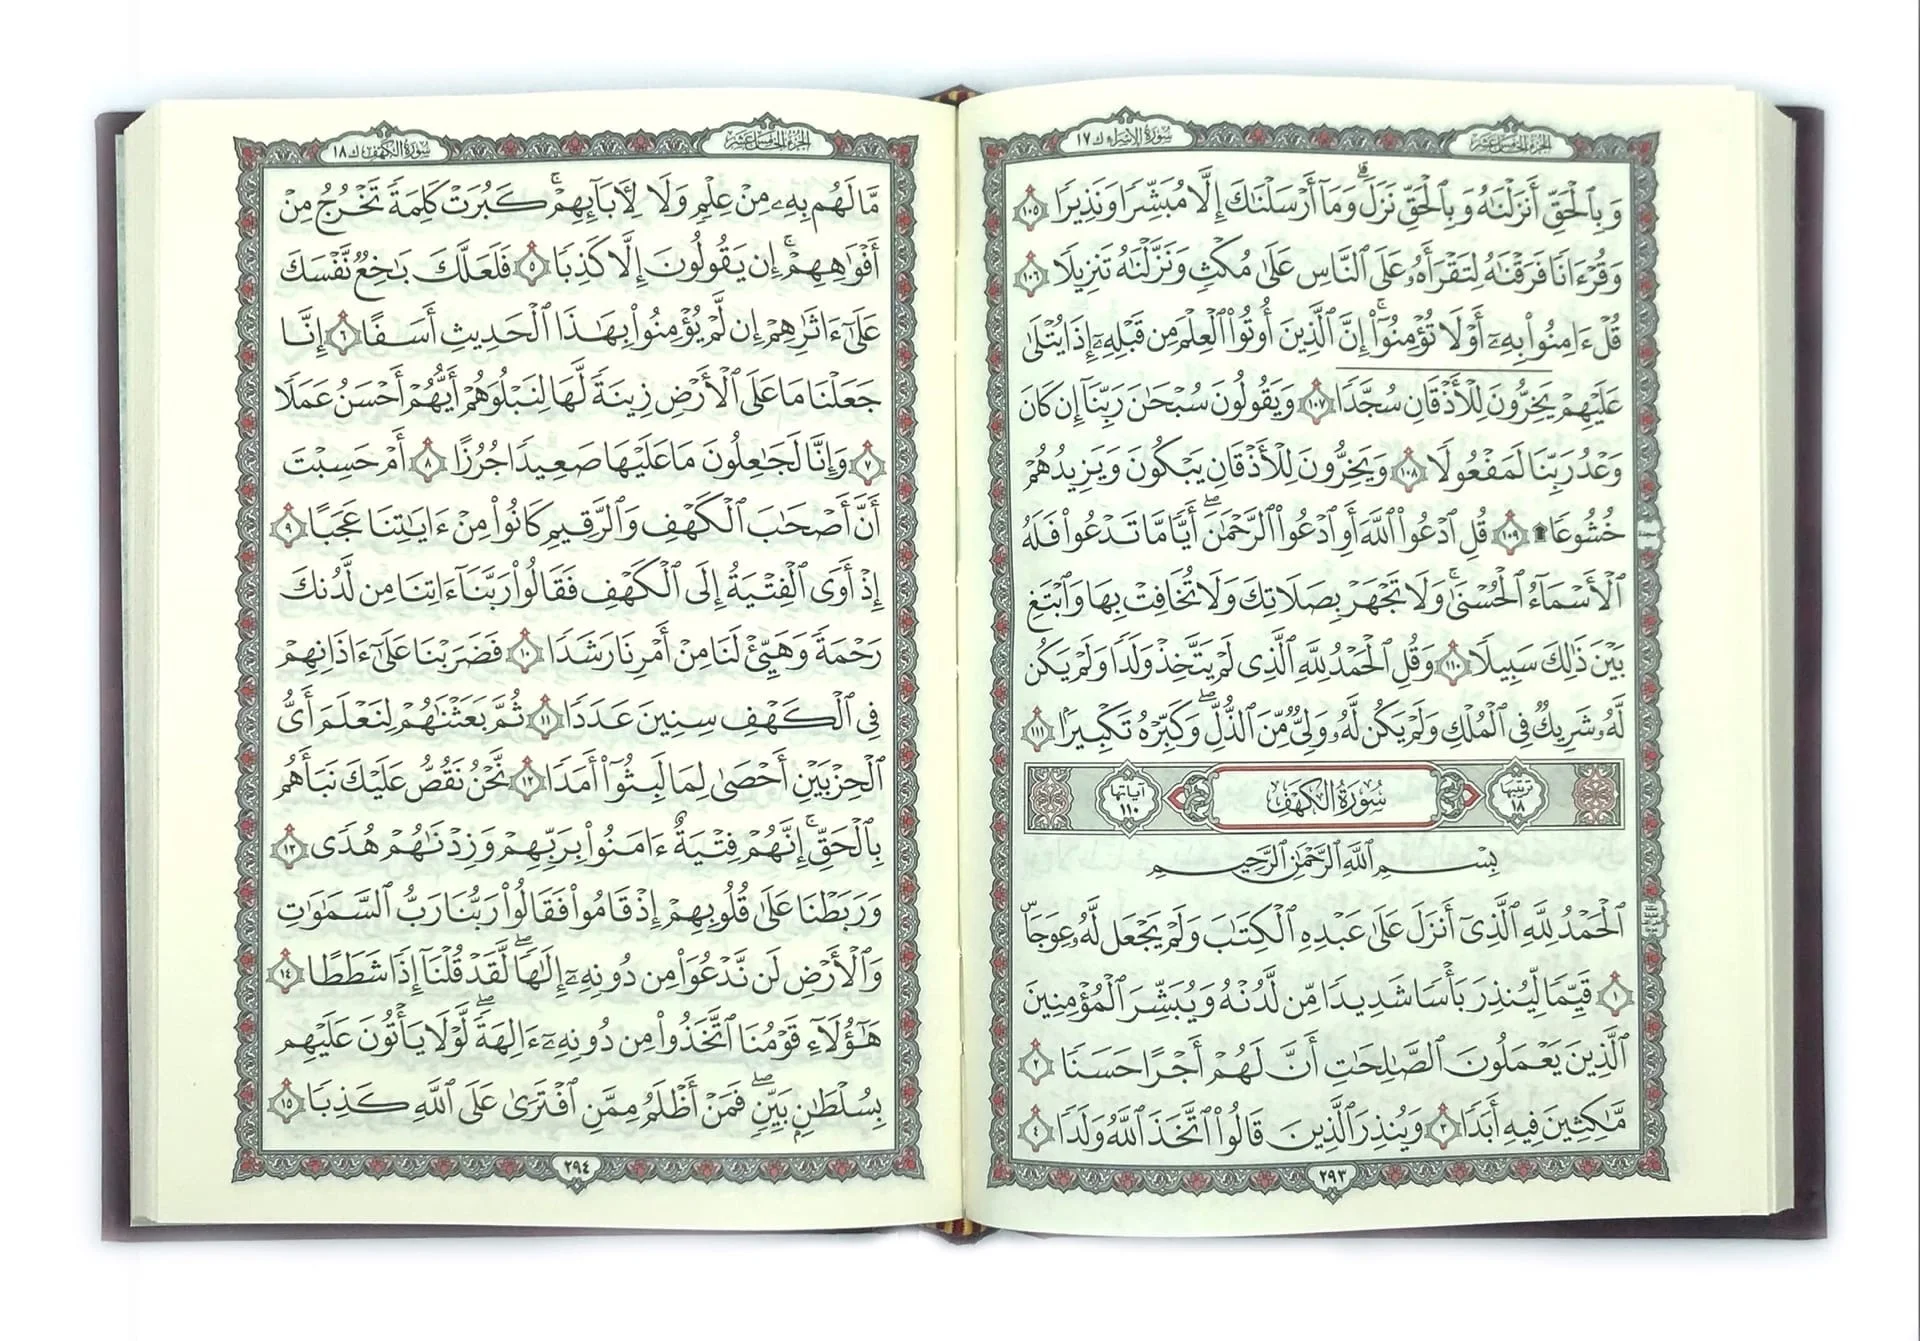 سورة الإسراء ك ١٧
الجزء الخامس عشر
وَبِٱلْحَقِّ أَنزَلْنَٰهُ وَبِٱلْحَقِّ نَزَلَ ۗ وَمَآ أَرْسَلْنَٰكَ إِلَّا مُبَشِّرًا وَنَذِيرًا ١٠٥
وَقُرْءَانًا فَرَقْنَٰهُ لِتَقْرَأَهُۥ عَلَى ٱلنَّاسِ عَلَىٰ مُكْثٍ وَنَزَّلْنَٰهُ تَنزِيلًا ١٠٦
قُلْ ءَامِنُوا۟ بِهِۦٓ أَوْ لَا تُؤْمِنُوٓا۟ ۚ إِنَّ ٱلَّذِينَ أُوتُوا۟ ٱلْعِلْمَ مِن قَبْلِهِۦٓ إِذَا يُتْلَىٰ
عَلَيْهِمْ يَخِرُّونَ لِلْأَذْقَانِ سُجَّدًا ١٠٧ وَيَقُولُونَ سُبْحَٰنَ رَبِّنَآ إِن كَانَ
وَعْدُ رَبِّنَا لَمَفْعُولًا ١٠٨ وَيَخِرُّونَ لِلْأَذْقَانِ يَبْكُونَ وَيَزِيدُهُمْ
خُشُوعًا ۩ ١٠٩ قُلِ ٱدْعُوا۟ ٱللَّهَ أَوِ ٱدْعُوا۟ ٱلرَّحْمَٰنَ ۖ أَيًّا مَّا تَدْعُوا۟ فَلَهُ
ٱلْأَسْمَآءُ ٱلْحُسْنَىٰ ۚ وَلَا تَجْهَرْ بِصَلَاتِكَ وَلَا تُخَافِتْ بِهَا وَٱبْتَغِ
بَيْنَ ذَٰلِكَ سَبِيلًا ١١٠ وَقُلِ ٱلْحَمْدُ لِلَّهِ ٱلَّذِى لَمْ يَتَّخِذْ وَلَدًا وَلَمْ يَكُن
لَّهُۥ شَرِيكٌ فِى ٱلْمُلْكِ وَلَمْ يَكُن لَّهُۥ وَلِىٌّ مِّنَ ٱلذُّلِّ ۖ وَكَبِّرْهُ تَكْبِيرًۢا ١١١
ترتيبها ١٨ سُورَةُ الكَهْفِ آياتها ١١٠
بِسْمِ ٱللَّهِ ٱلرَّحْمَٰنِ ٱلرَّحِيمِ
ٱلْحَمْدُ لِلَّهِ ٱلَّذِىٓ أَنزَلَ عَلَىٰ عَبْدِهِ ٱلْكِتَٰبَ وَلَمْ يَجْعَل لَّهُۥ عِوَجَاۜ
١ قَيِّمًا لِّيُنذِرَ بَأْسًا شَدِيدًا مِّن لَّدُنْهُ وَيُبَشِّرَ ٱلْمُؤْمِنِينَ
ٱلَّذِينَ يَعْمَلُونَ ٱلصَّٰلِحَٰتِ أَنَّ لَهُمْ أَجْرًا حَسَنًا ٢
مَّٰكِثِينَ فِيهِ أَبَدًا ٣ وَيُنذِرَ ٱلَّذِينَ قَالُوا۟ ٱتَّخَذَ ٱللَّهُ وَلَدًا ٤
٢٩٣
سورة الكهف ك ١٨
الجزء الخامس عشر
مَّا لَهُم بِهِۦ مِنْ عِلْمٍ وَلَا لِءَابَآئِهِمْ ۚ كَبُرَتْ كَلِمَةً تَخْرُجُ مِنْ
أَفْوَٰهِهِمْ ۚ إِن يَقُولُونَ إِلَّا كَذِبًا ٥ فَلَعَلَّكَ بَٰخِعٌ نَّفْسَكَ
عَلَىٰٓ ءَاثَٰرِهِمْ إِن لَّمْ يُؤْمِنُوا۟ بِهَٰذَا ٱلْحَدِيثِ أَسَفًا ٦ إِنَّا
جَعَلْنَا مَا عَلَى ٱلْأَرْضِ زِينَةً لَّهَا لِنَبْلُوَهُمْ أَيُّهُمْ أَحْسَنُ عَمَلًا
٧ وَإِنَّا لَجَٰعِلُونَ مَا عَلَيْهَا صَعِيدًا جُرُزًا ٨ أَمْ حَسِبْتَ
أَنَّ أَصْحَٰبَ ٱلْكَهْفِ وَٱلرَّقِيمِ كَانُوا۟ مِنْ ءَايَٰتِنَا عَجَبًا ٩
إِذْ أَوَى ٱلْفِتْيَةُ إِلَى ٱلْكَهْفِ فَقَالُوا۟ رَبَّنَآ ءَاتِنَا مِن لَّدُنكَ
رَحْمَةً وَهَيِّئْ لَنَا مِنْ أَمْرِنَا رَشَدًا ١٠ فَضَرَبْنَا عَلَىٰٓ ءَاذَانِهِمْ
فِى ٱلْكَهْفِ سِنِينَ عَدَدًا ١١ ثُمَّ بَعَثْنَٰهُمْ لِنَعْلَمَ أَىُّ
ٱلْحِزْبَيْنِ أَحْصَىٰ لِمَا لَبِثُوٓا۟ أَمَدًا ١٢ نَّحْنُ نَقُصُّ عَلَيْكَ نَبَأَهُم
بِٱلْحَقِّ ۚ إِنَّهُمْ فِتْيَةٌ ءَامَنُوا۟ بِرَبِّهِمْ وَزِدْنَٰهُمْ هُدًى ١٣
وَرَبَطْنَا عَلَىٰ قُلُوبِهِمْ إِذْ قَامُوا۟ فَقَالُوا۟ رَبُّنَا رَبُّ ٱلسَّمَٰوَٰتِ
وَٱلْأَرْضِ لَن نَّدْعُوَا۟ مِن دُونِهِۦٓ إِلَٰهًا ۖ لَّقَدْ قُلْنَآ إِذًا شَطَطًا ١٤
هَٰٓؤُلَآءِ قَوْمُنَا ٱتَّخَذُوا۟ مِن دُونِهِۦٓ ءَالِهَةً ۖ لَّوْلَا يَأْتُونَ عَلَيْهِم
بِسُلْطَٰنٍۭ بَيِّنٍ ۖ فَمَنْ أَظْلَمُ مِمَّنِ ٱفْتَرَىٰ عَلَى ٱللَّهِ كَذِبًا ١٥
٢٩٤